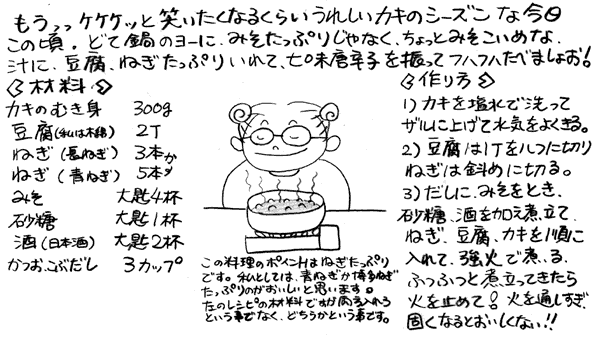 もうっっケケケッと笑いたくなるくらいうれしいカキのシーズンな今日
この頃。どて鍋のヨーに、みそたっぷりじゃなく、ちょっとみそこいめな、
汁に、豆腐、ねぎたっぷりいれて、七味唐辛子を振ってフハフハたべましょお!
<材料>
カキのむき身 300g
豆腐(私は木綿) 2丁
ねぎ(長ねぎ) 3本か
ねぎ(青ねぎ) 5本
みそ 大匙4杯
砂糖 大匙1杯
酒(日本酒) 大匙2杯
かつおこぶだし 3カップ
この料理のポイントはねぎたっぷり
です。私としては、青ねぎか博多ねぎ
たっぷりのがおいしいと思います。
左のレシピの材料ですが両方入れる
という事でなく、どちらかという事です。
<作り方>
1)カキを塩水で洗って
ザルに上げて水気をよくきる。
2)豆腐は1丁を八つに切り
ねぎは斜めに切る。
3)だしに、みそをとき、
砂糖、酒を加え煮立て、
ねぎ、豆腐、カキを順に
入れて、強火で煮る。
ふっふっと煮立ってきたら
火を止めて!火を通しすぎ
固くなるとおいしくない!!